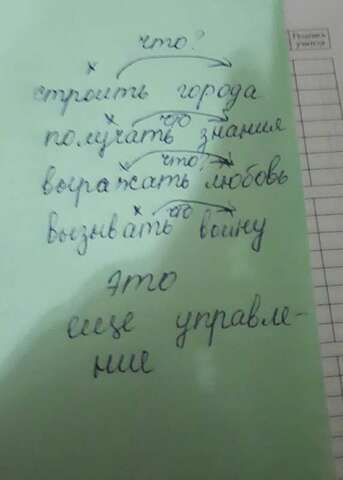 что?
строить города
что
получать знания
что?
выражать любовь
что
вызывать войну
это
еще управле-
ние
Подпись
учителя